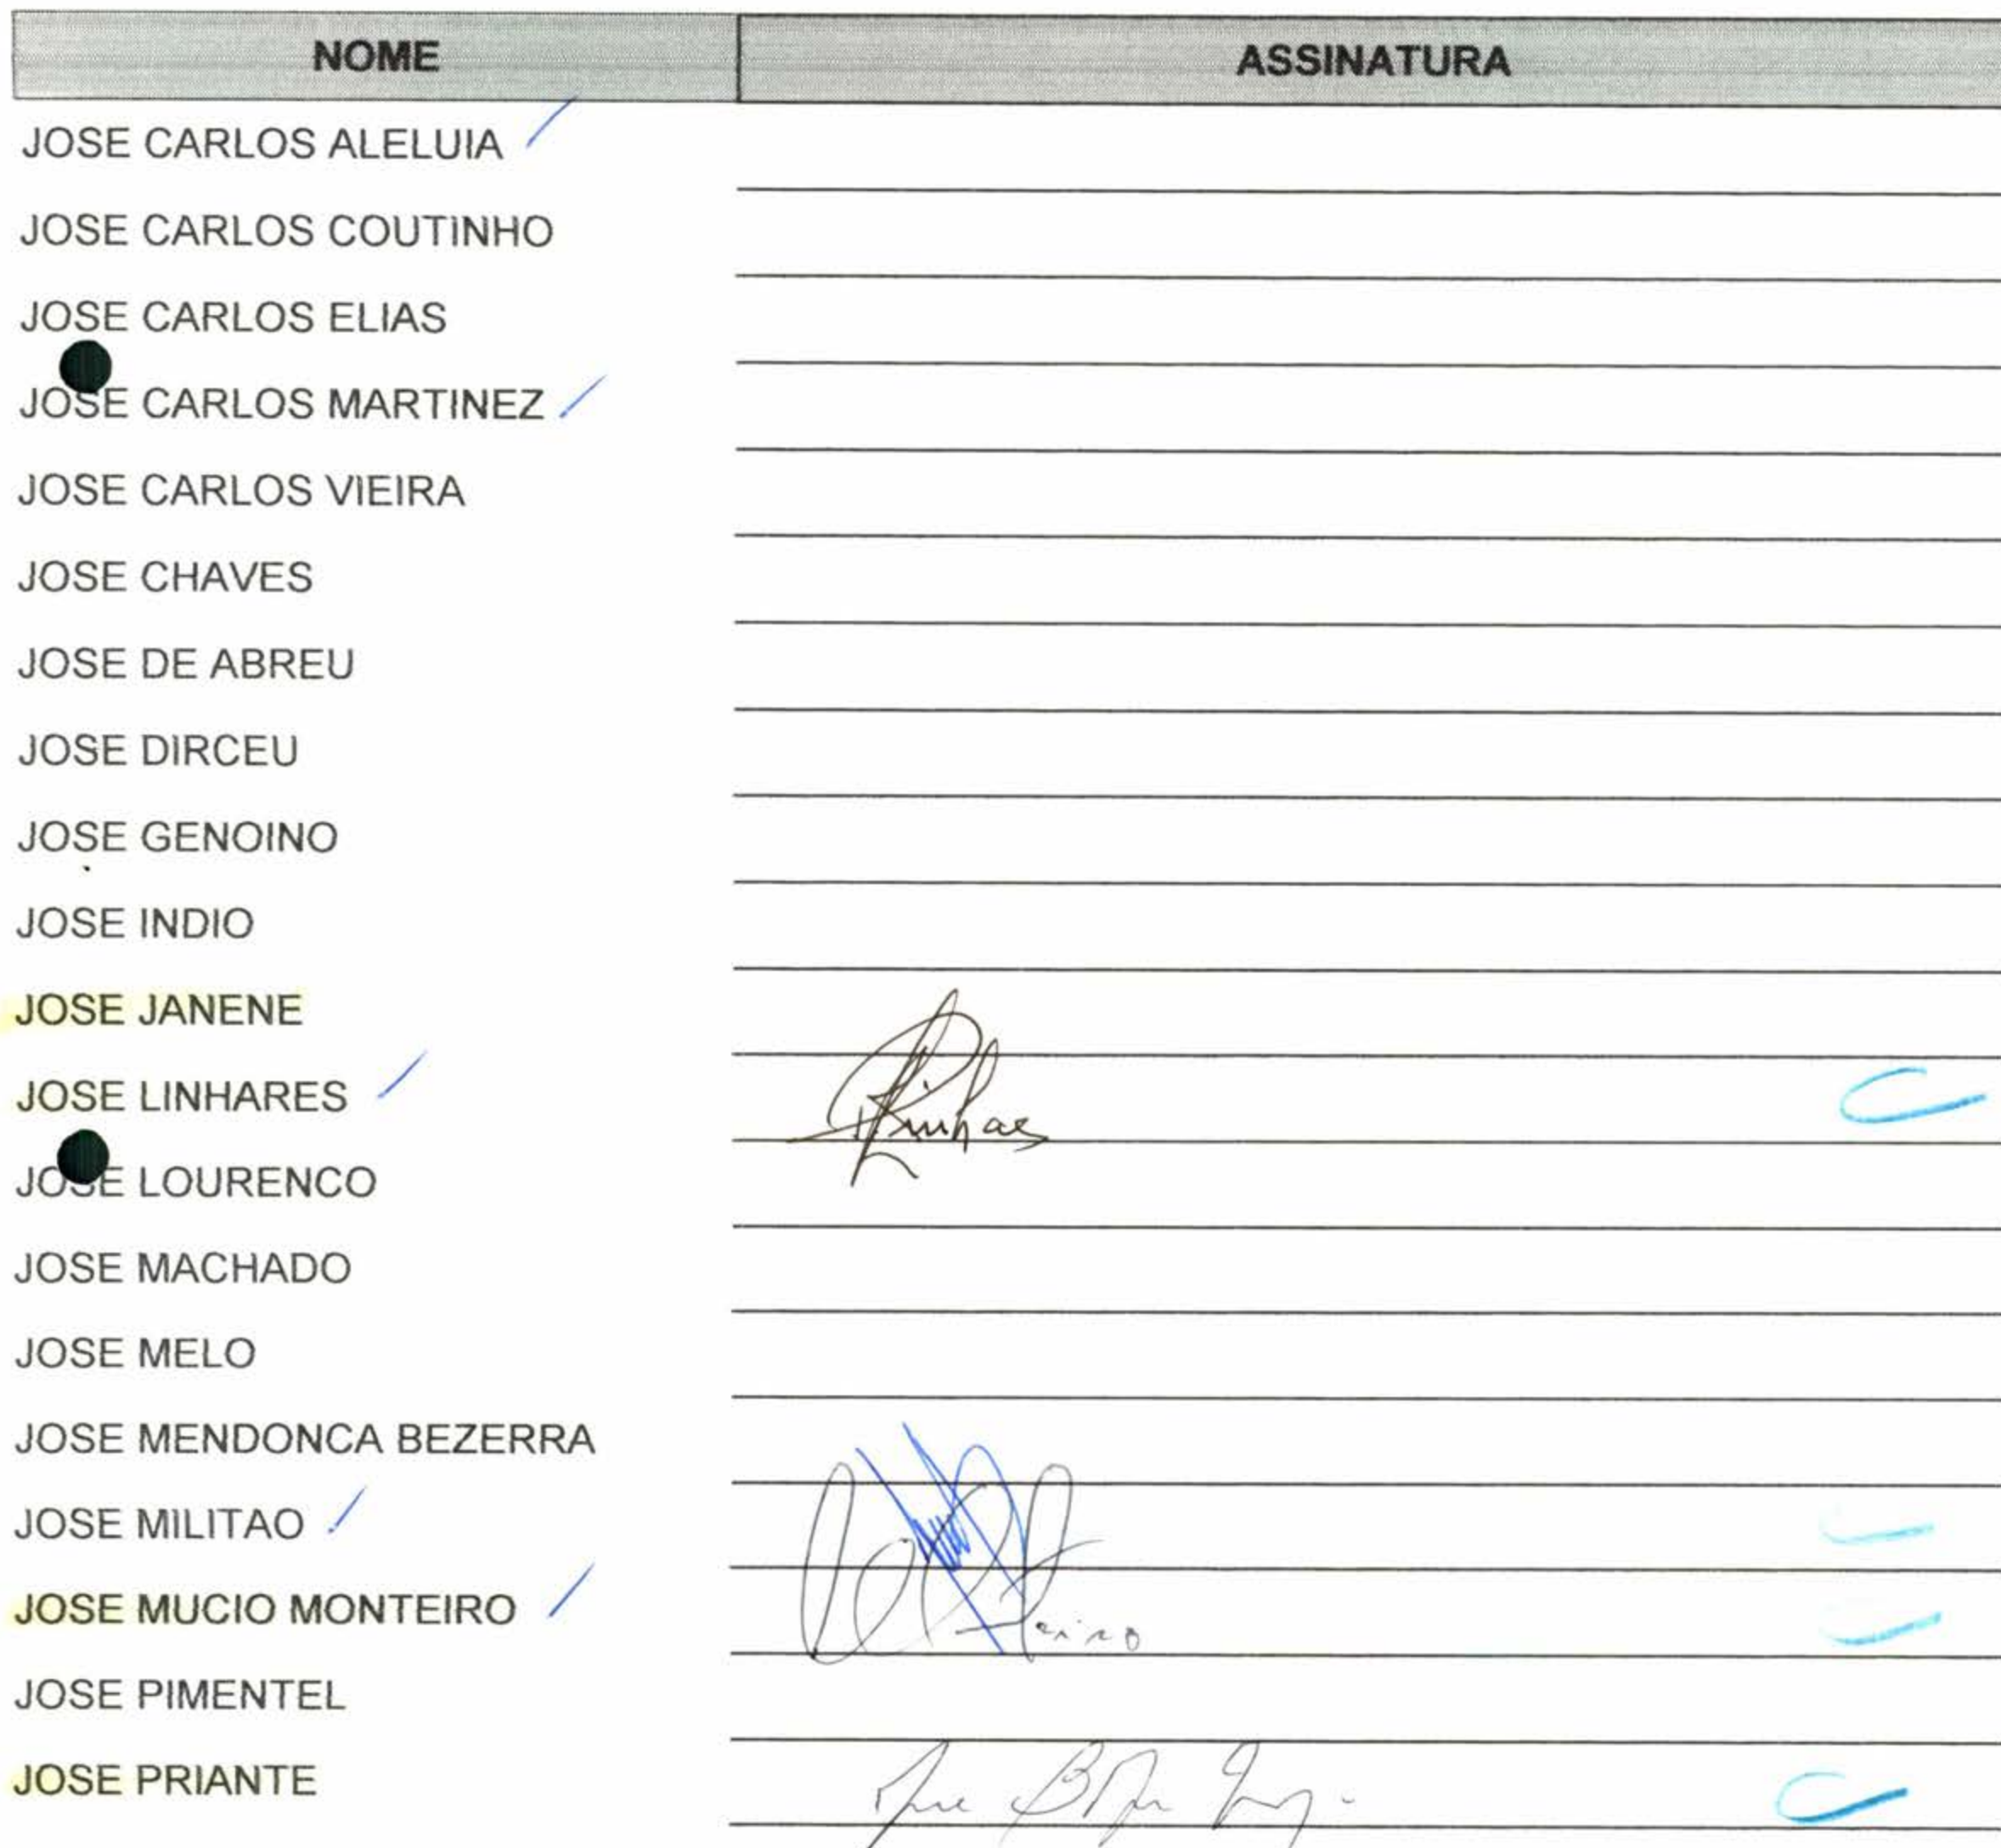 NOME ASSINATURA
JOSE CARLOS ALELUIA
JOSE CARLOS COUTINHO
JOSE CARLOS ELIAS
JOSE CARLOS MARTINEZ
JOSE CARLOS VIEIRA
JOSE CHAVES
JOSE DE ABREU
JOSE DIRCEU
JOSE GENOINO
JOSE INDIO
JOSE JANENE
JOSE LINHARES
JOSE LOURENCO
JOSE MACHADO
JOSE MELO
JOSE MENDONCA BEZERRA
JOSE MILITAO
JOSE MUCIO MONTEIRO
JOSE PIMENTEL
JOSE PRIANTE